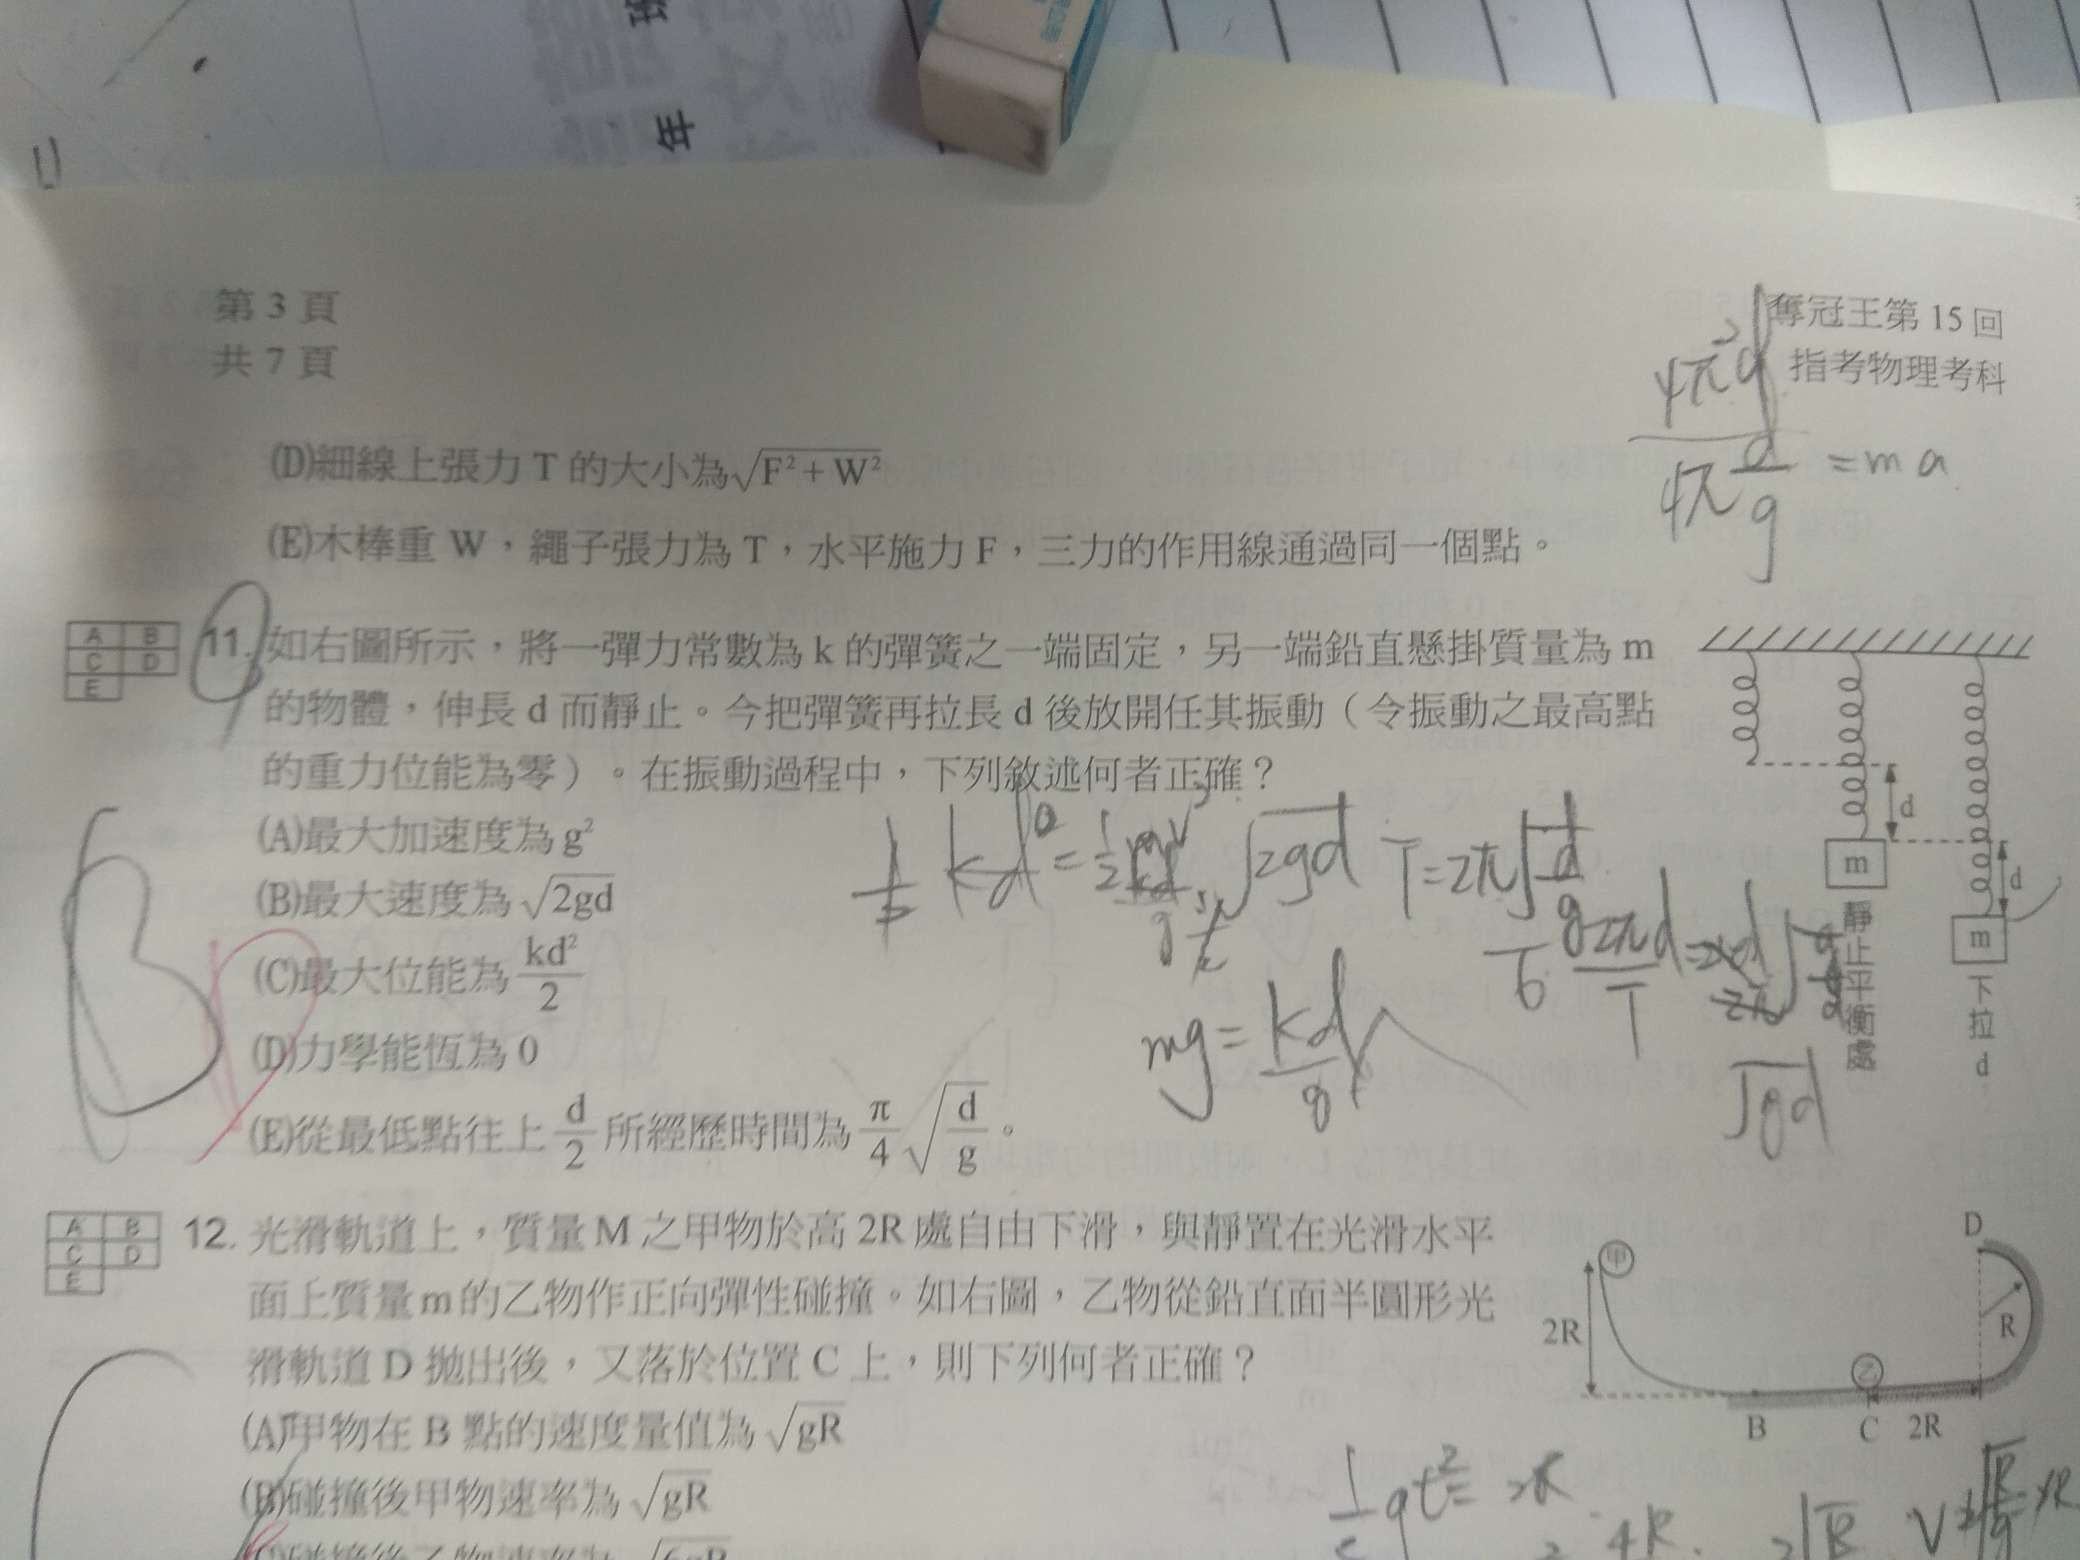 年
第 3 頁
共 7 頁
奪冠王第 15 回
指考物理考科
4π²d
4π d/g = ma
(D)細線上張力 T 的大小為√F²+W²
(E)木棒重 W，繩子張力為 T，水平施力 F，三力的作用線通過同一個點。
A B
C D
E
11. 如右圖所示，將一彈力常數為 k 的彈簧之一端固定，另一端鉛直懸掛質量為 m
的物體，伸長 d 而靜止。今把彈簧再拉長 d 後放開任其振動（令振動之最高點
的重力位能為零）。在振動過程中，下列敘述何者正確？
(A)最大加速度為 g²
(B)最大速度為 √2gd
(C)最大位能為 kd²/2
(D)力學能恆為 0
(E)從最低點往上 d/2 所經歷時間為 π/4 √d/g。
d
m
靜止平衡處
d
m
下拉 d
√2gd
T=2π√d/g
2πd/T
mg = kd
√gd
A B
C D
E
12. 光滑軌道上，質量 M 之甲物於高 2R 處自由下滑，與靜置在光滑水平
面上質量 m 的乙物作正向彈性碰撞。如右圖，乙物從鉛直面半圓形光
滑軌道 D 拋出後，又落於位置 C 上，則下列何者正確？
(A)甲物在 B 點的速度量值為 √gR
(B)碰撞後甲物速率為 √gR
甲
D
2R
R
乙
B C 2R
½gt² = 2R
4R